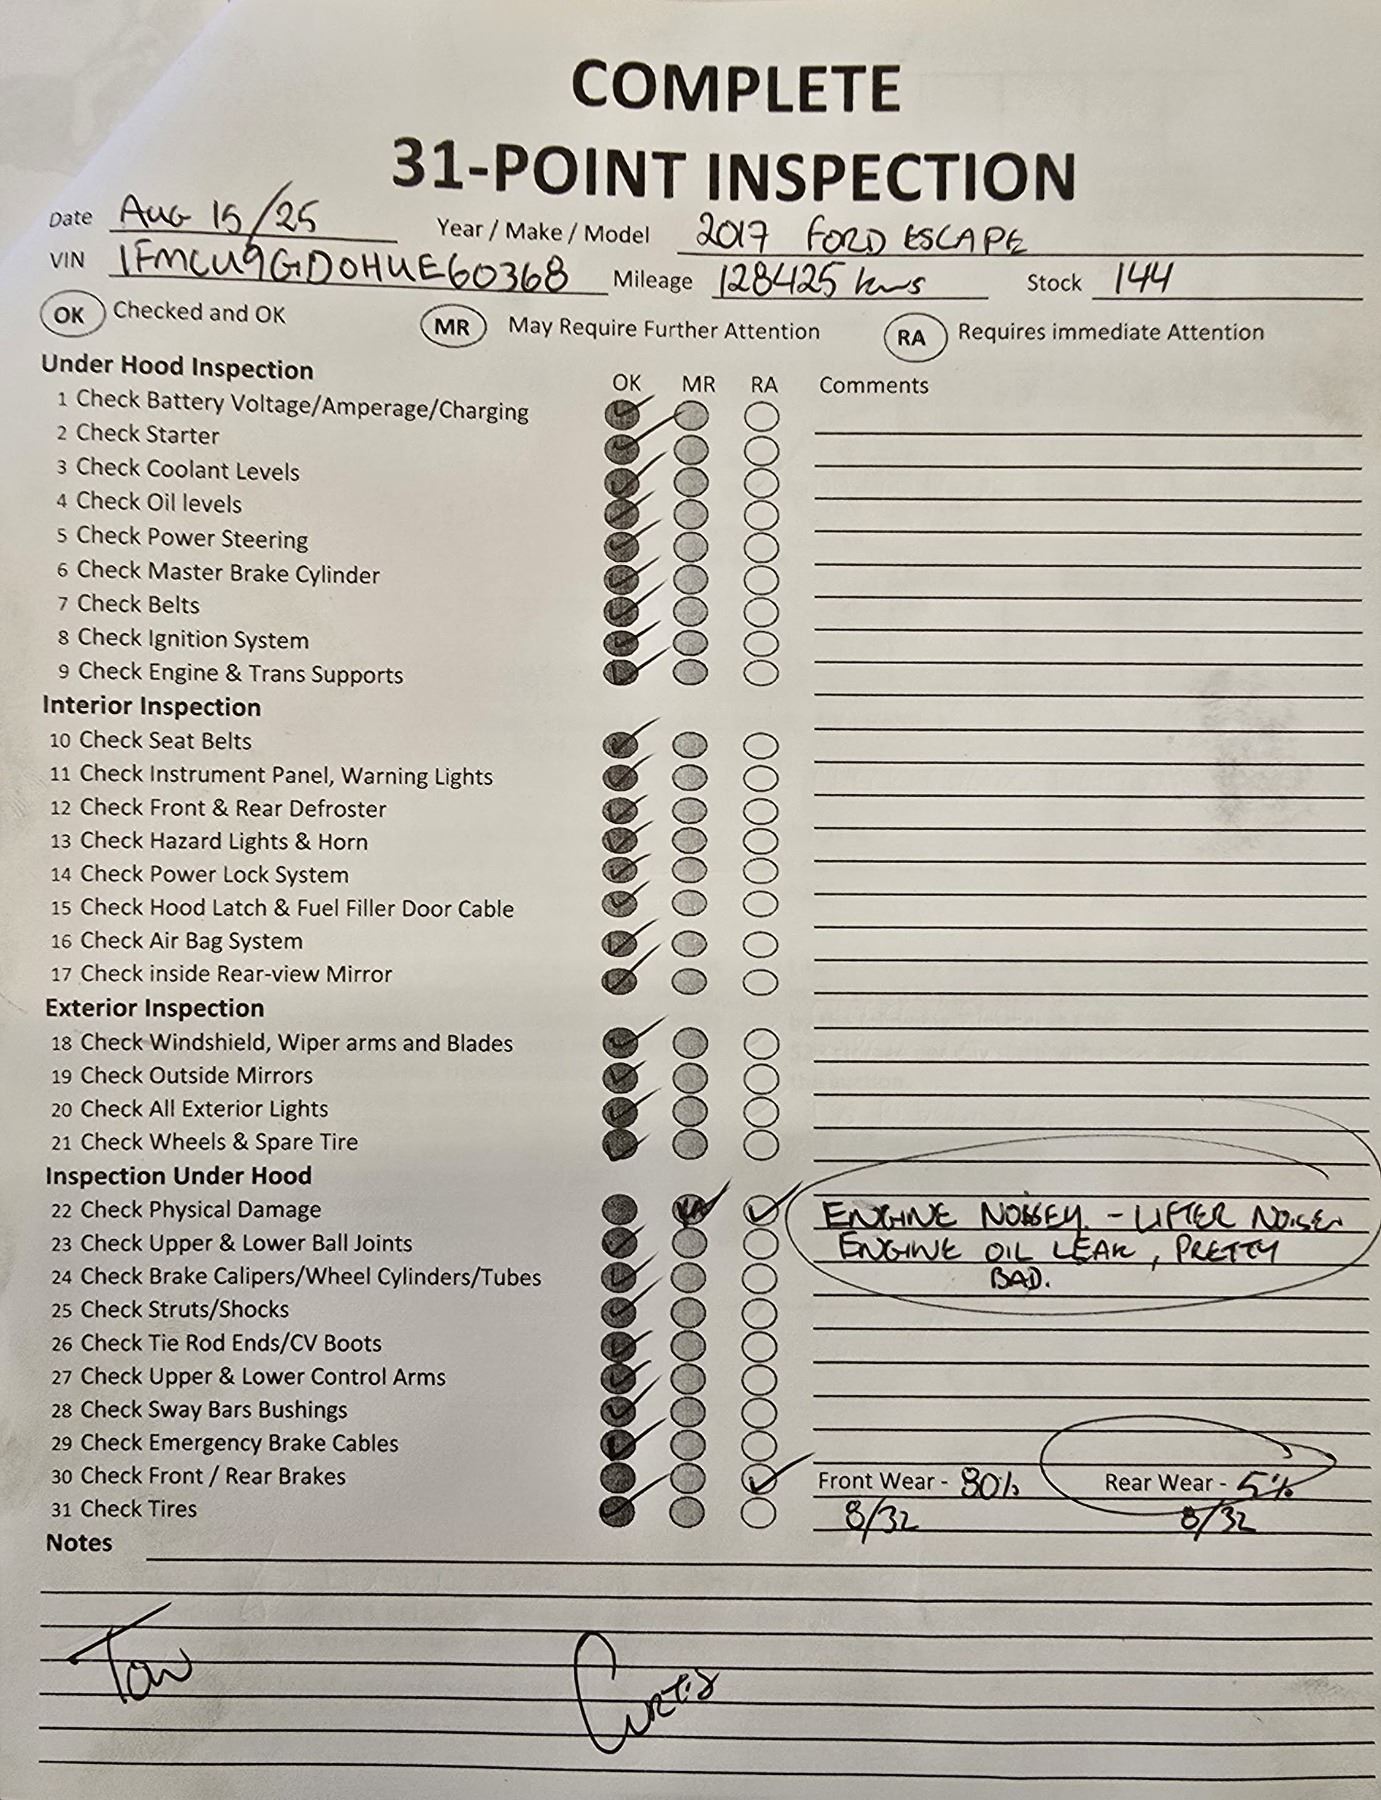 COMPLETE
31-POINT INSPECTION
Date Aug 15/25 Year / Make / Model 2017 FORD ESCAPE
VIN 1FMCU9GD0HUE60368 Mileage 128425 kms Stock 144
OK Checked and OK MR May Require Further Attention RA Requires immediate Attention
Under Hood Inspection OK MR RA Comments
1 Check Battery Voltage/Amperage/Charging
2 Check Starter
3 Check Coolant Levels
4 Check Oil levels
5 Check Power Steering
6 Check Master Brake Cylinder
7 Check Belts
8 Check Ignition System
9 Check Engine & Trans Supports
Interior Inspection
10 Check Seat Belts
11 Check Instrument Panel, Warning Lights
12 Check Front & Rear Defroster
13 Check Hazard Lights & Horn
14 Check Power Lock System
15 Check Hood Latch & Fuel Filler Door Cable
16 Check Air Bag System
17 Check inside Rear-view Mirror
Exterior Inspection
18 Check Windshield, Wiper arms and Blades
19 Check Outside Mirrors
20 Check All Exterior Lights
21 Check Wheels & Spare Tire
Inspection Under Hood
22 Check Physical Damage ENGINE NOISEY - LIFTER NOISE
23 Check Upper & Lower Ball Joints ENGINE OIL LEAK, PRETTY
24 Check Brake Calipers/Wheel Cylinders/Tubes BAD.
25 Check Struts/Shocks
26 Check Tie Rod Ends/CV Boots
27 Check Upper & Lower Control Arms
28 Check Sway Bars Bushings
29 Check Emergency Brake Cables
30 Check Front / Rear Brakes Front Wear - 80% Rear Wear - 5%
31 Check Tires 8/32 8/32
Notes
Curtis